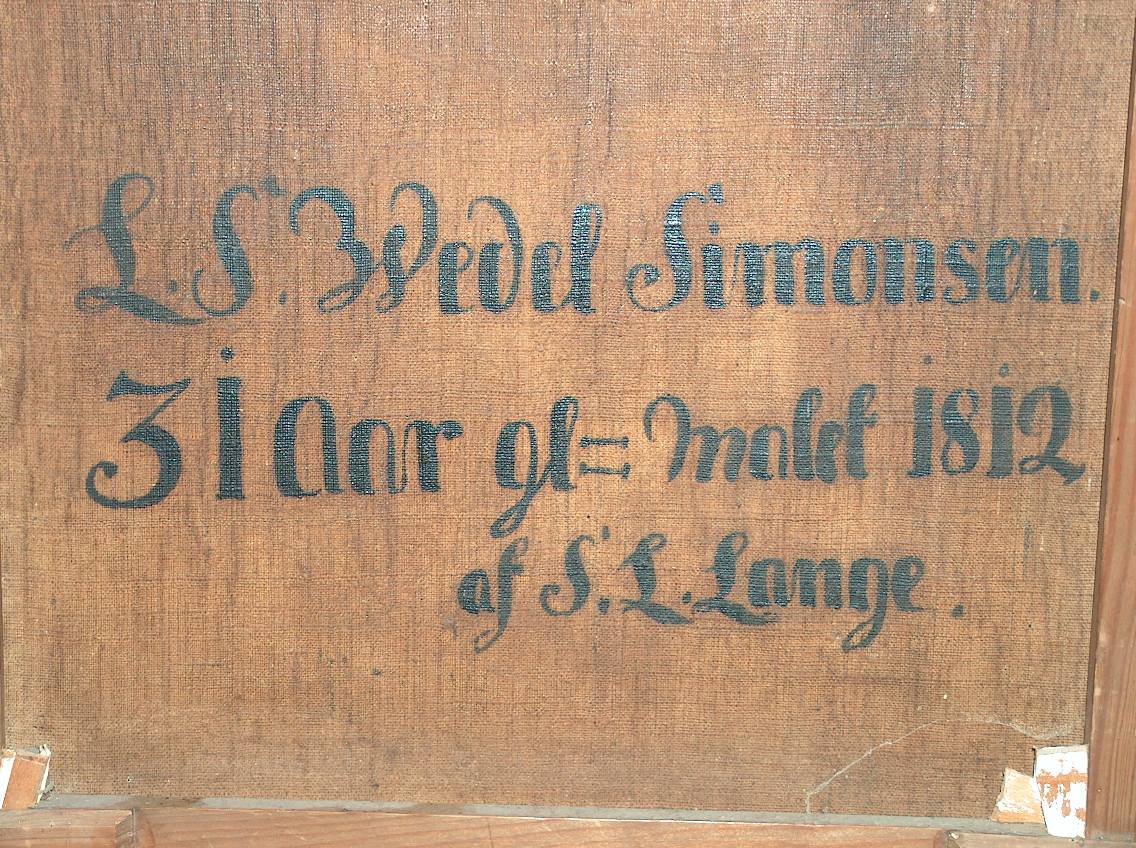 L. S. Wedel Simonsen.
31 Aar gl= malet 1812
af S. L. Lange.